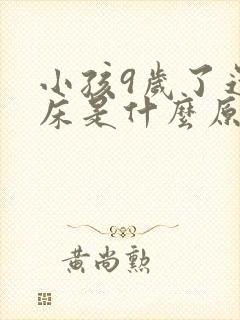 小孩9歲了
床是什麼原
黃尚勲